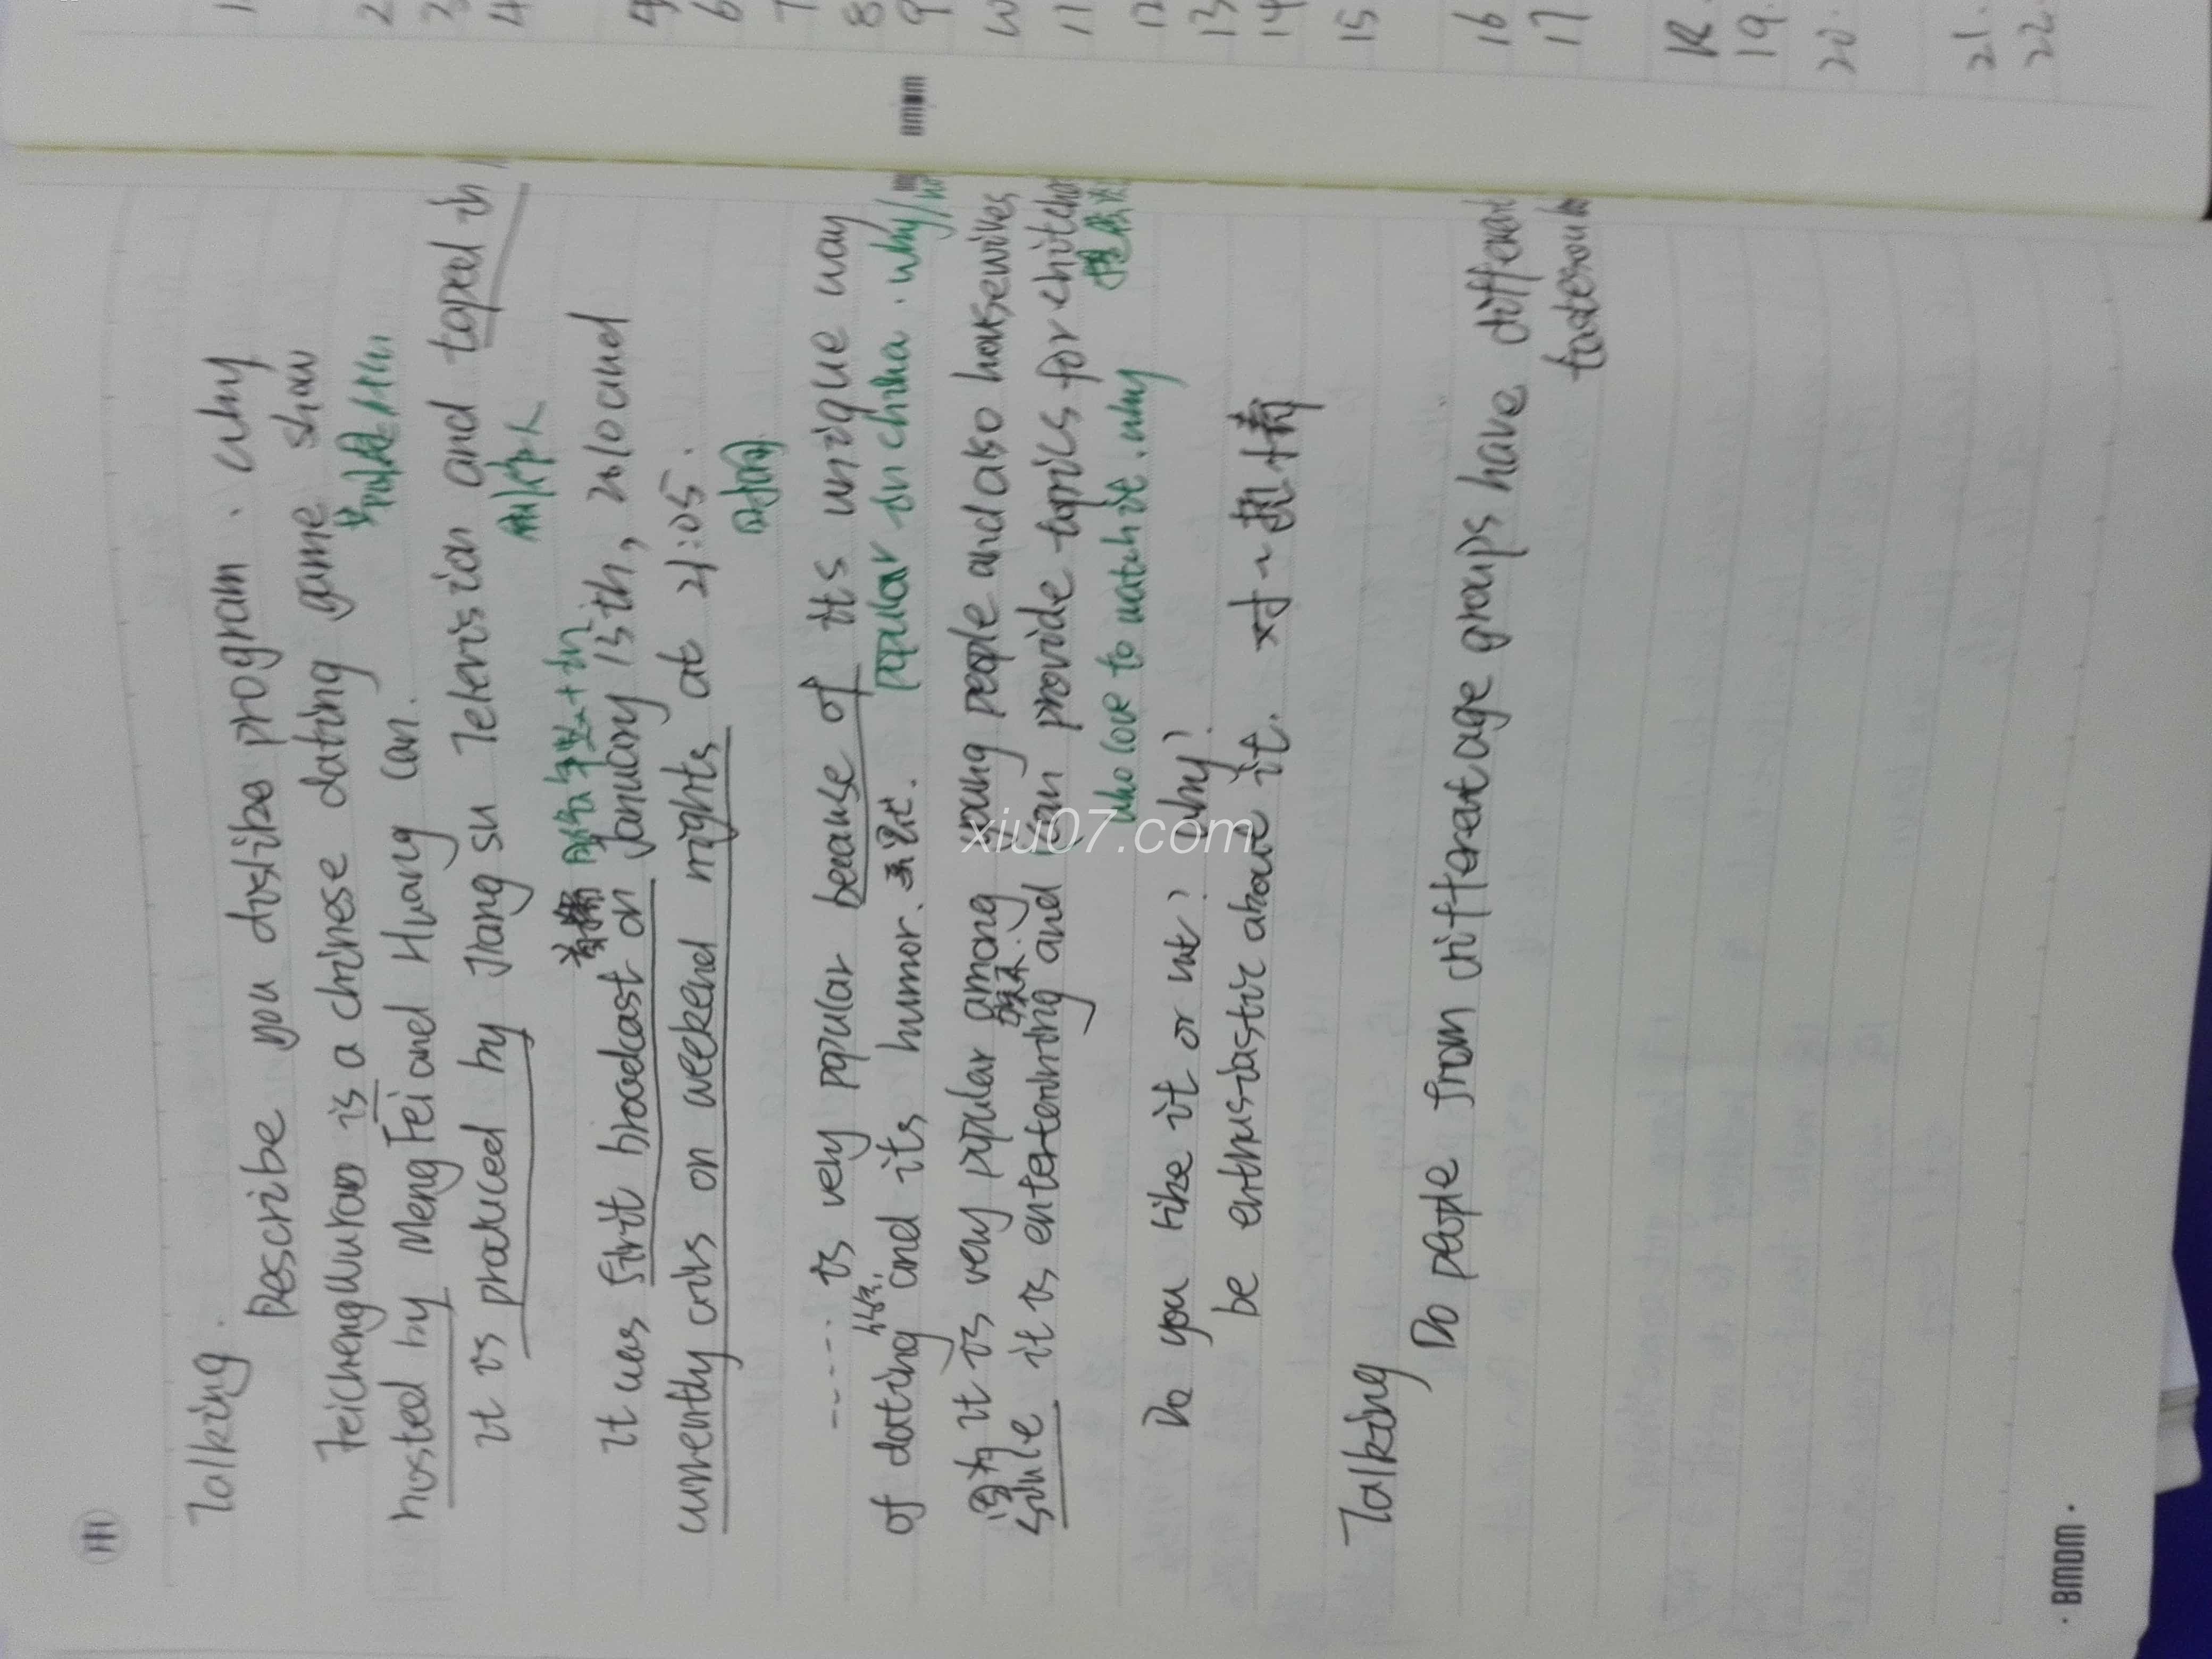 Talking.
Describe you dislike program . why
Feichengwurao is a chinese dating game show
hosted by Meng Fei and Huang can.
it is produced by Jiang su Television and taped in
制作人
首播 月份 数字+th
it was first broadcast on January 15th, 2010 and
currently airs on weekend nights at 21:05.
时间
..... is very popular because of its unique way
popular in china . why/
of dating and its humor.
it is very popular among young people and also housewives
it is entertaining and can provide topics for chitchat
who love to watch it . why 提供
Do you like it or not? why?
be enthusiastic about it. 对~热情
Talking
Do people from different age groups have different
BMDM
xiu07.com
1
2
3
4
5
6
7
8
9
10
11
12
13
14
15
16
17
18
19.
20.
21.
22.